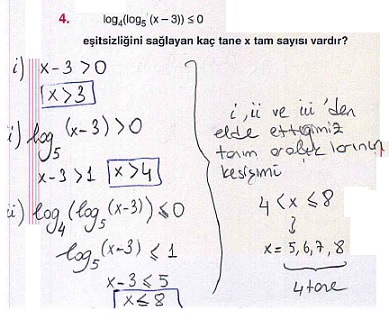 4. log₄(log₅ (x – 3)) ≤ 0
eşitsizliğini sağlayan kaç tane x tam sayısı vardır?
i) x-3 > 0
x>3
ii) log₅ (x-3) > 0
x-3 > 1 x>4
iii) log₄ (log₅ (x-3)) ≤ 0
log₅ (x-3) ≤ 1
x-3 ≤ 5
x ≤ 8
i, ii ve iii 'den
elde ettiğimiz
tanım aralıklarının
kesişimi
4 < x ≤ 8
x = 5, 6, 7, 8
4 tane